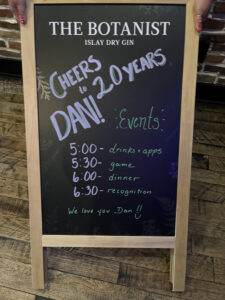 THE BOTANIST
ISLAY DRY GIN
CHEERS
to 20 YEARS
DAN!
:Events:
5:00 - drinks + apps
5:30 - game
6:00 - dinner
6:30 - recognition
We love you Dan!!